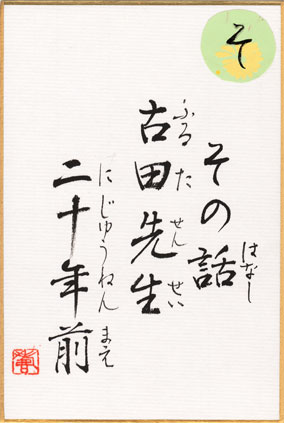 そ
その話
はなし
古田先生
ふるたせんせい
二十年前
にじゅうねんまえ